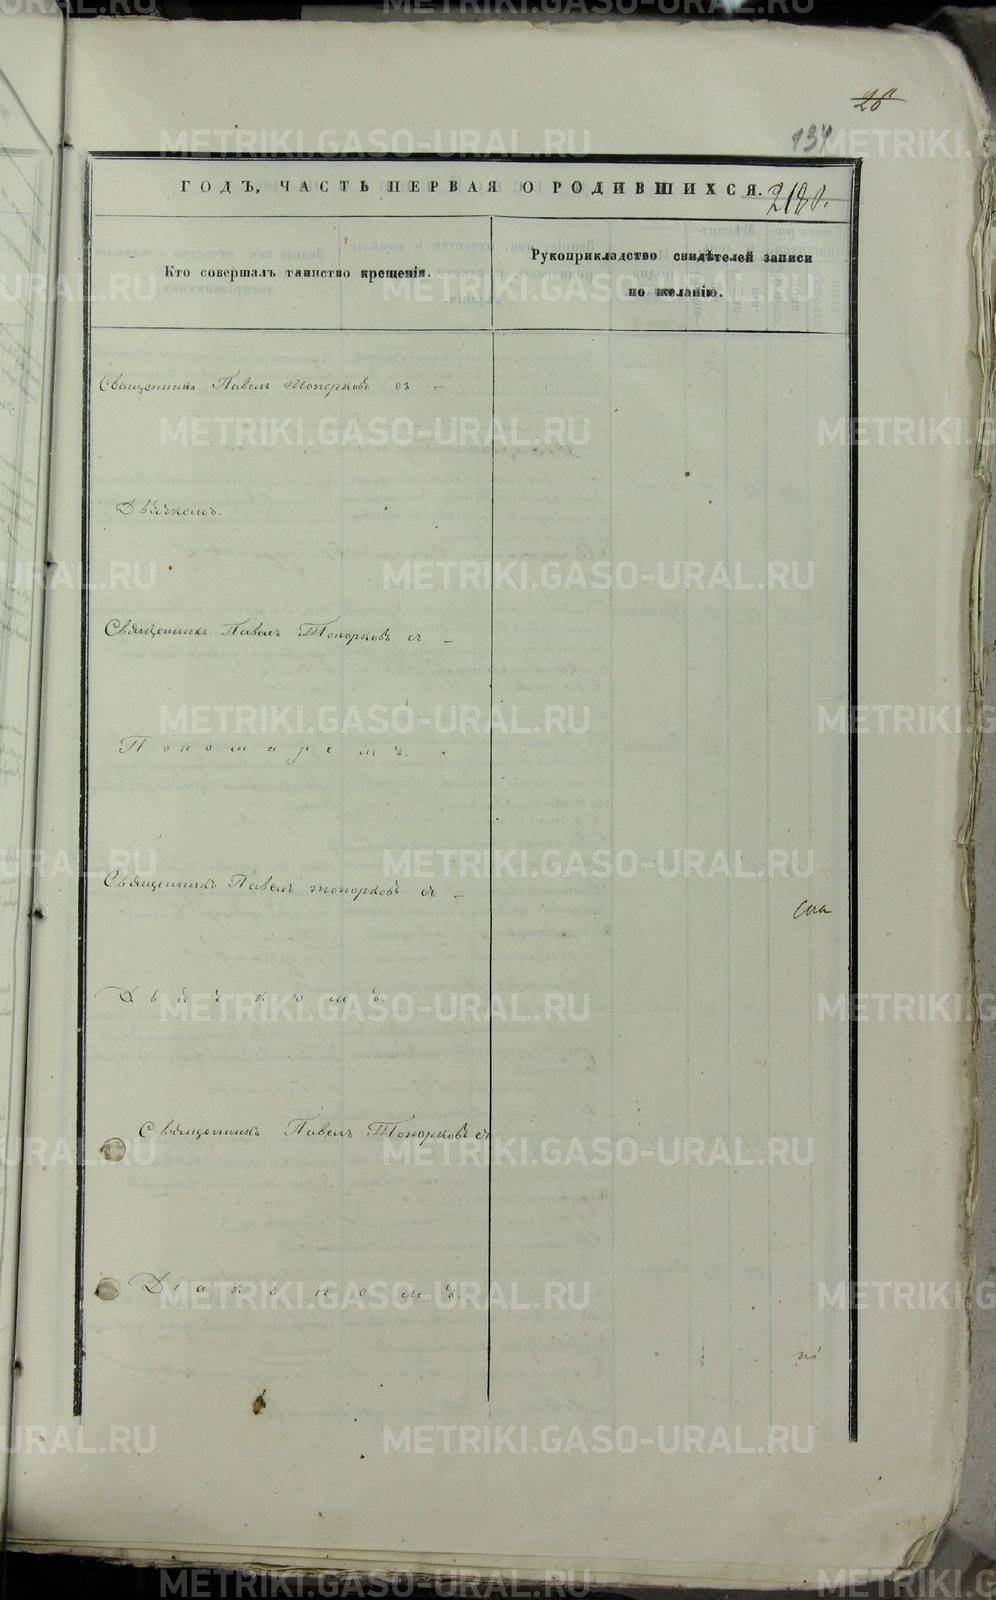 134
ГОДЪ, ЧАСТЬ ПЕРВАЯ О РОДИВШИХСЯ.
Кто совершалъ таинство крещенія.
Рукоприкладство свидѣтелей записи
по желанію.
Священникъ Павелъ Топорковъ съ –
Дьячкомъ.
Священникъ Павелъ Топорковъ съ –
Пономаремъ.
Священникъ Павелъ Топорковъ съ –
Дьячкомъ.
Священникъ Павелъ Топорковъ съ
Діакономъ.
METRIKI.GASO-URAL.RU